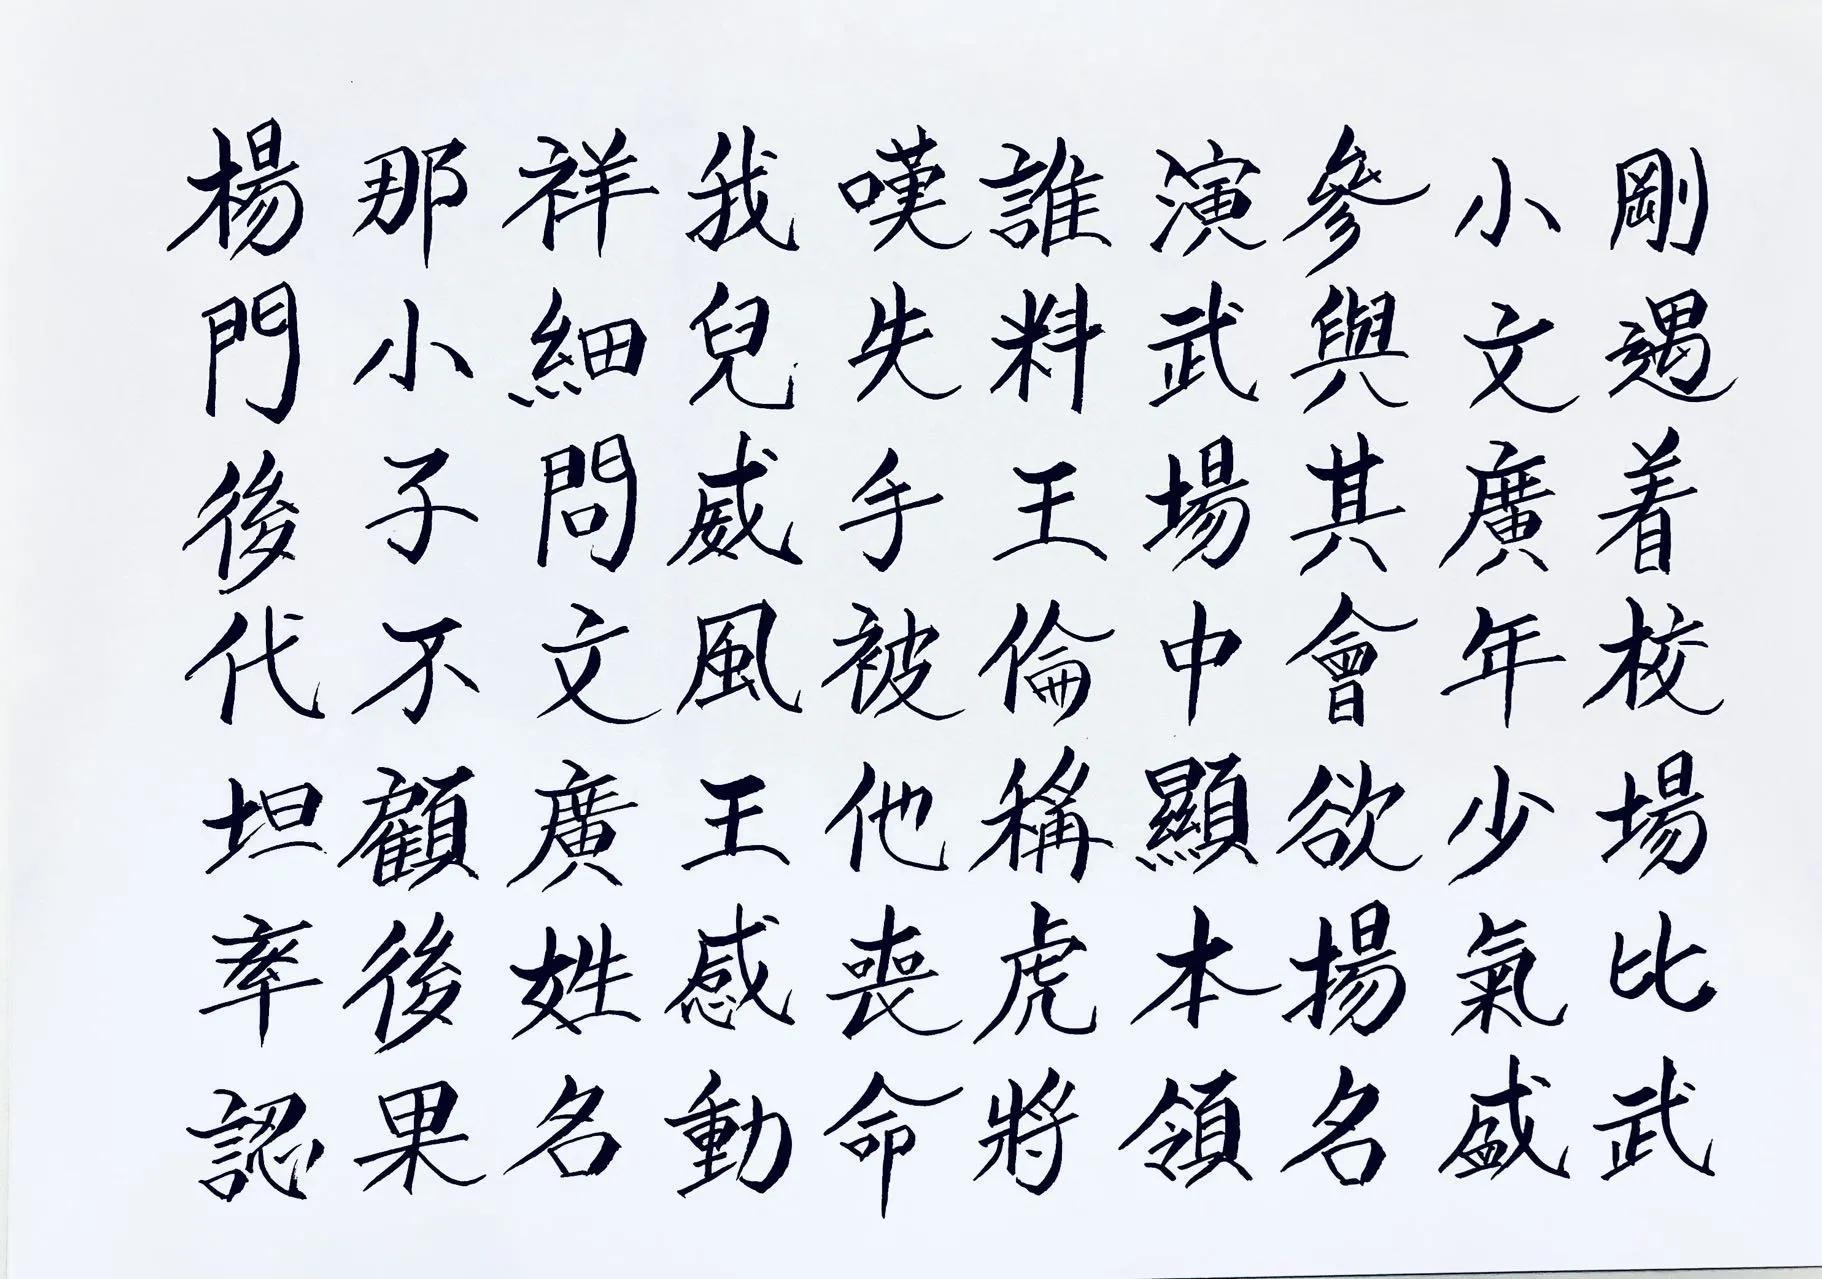 剛遇着校場比武
小文廣年少氣盛
參與其會欲揚名
演武場中顯本領
誰料王倫稱虎將
嘆失手被他喪命
我兒威風王感動
祥細問文廣姓名
那小子不顧後果
楊門後代坦率認